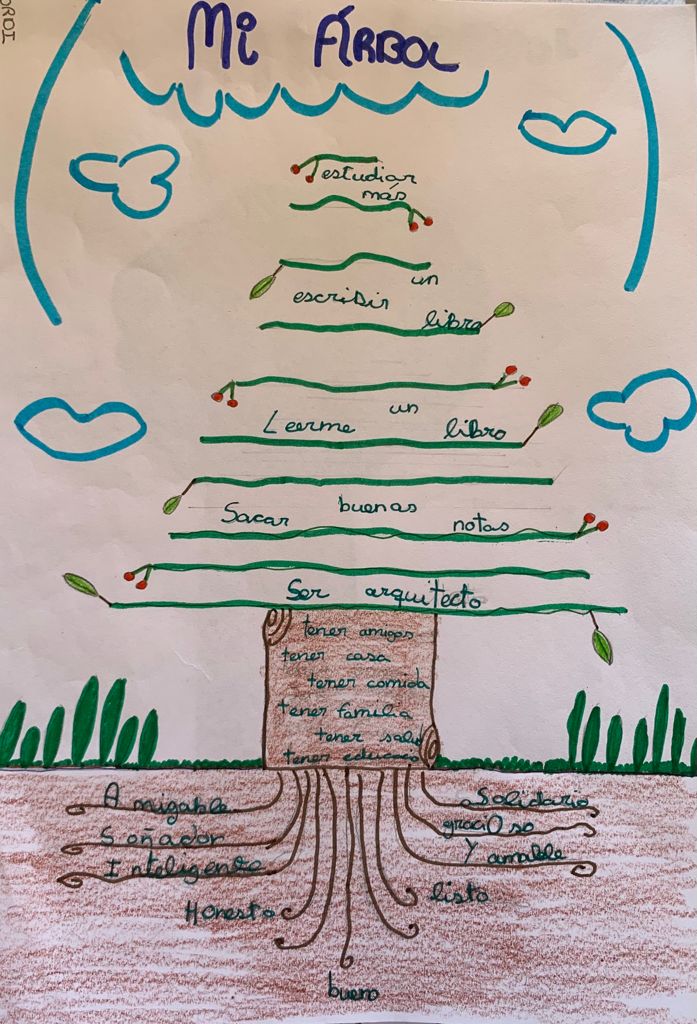 JORDI
Mi ÁRBOL
estudiar
más
un
escribir
libro
un
Leerme libro
Sacar buenas notas
Ser arquitecto
tener amigos
tener casa
tener comida
tener familia
tener salud
tener educacio
Amigable
Soñador
Inteligente
Honesto
bueno
listo
Solidario
gracioso
Y amable